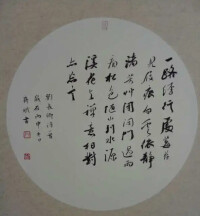 一路經行處莓苔
見履痕白雲依靜
渚芳草閉閑門過雨
看松色隨山到水源
溪花與禪意相對
亦忘言
劉長卿詩